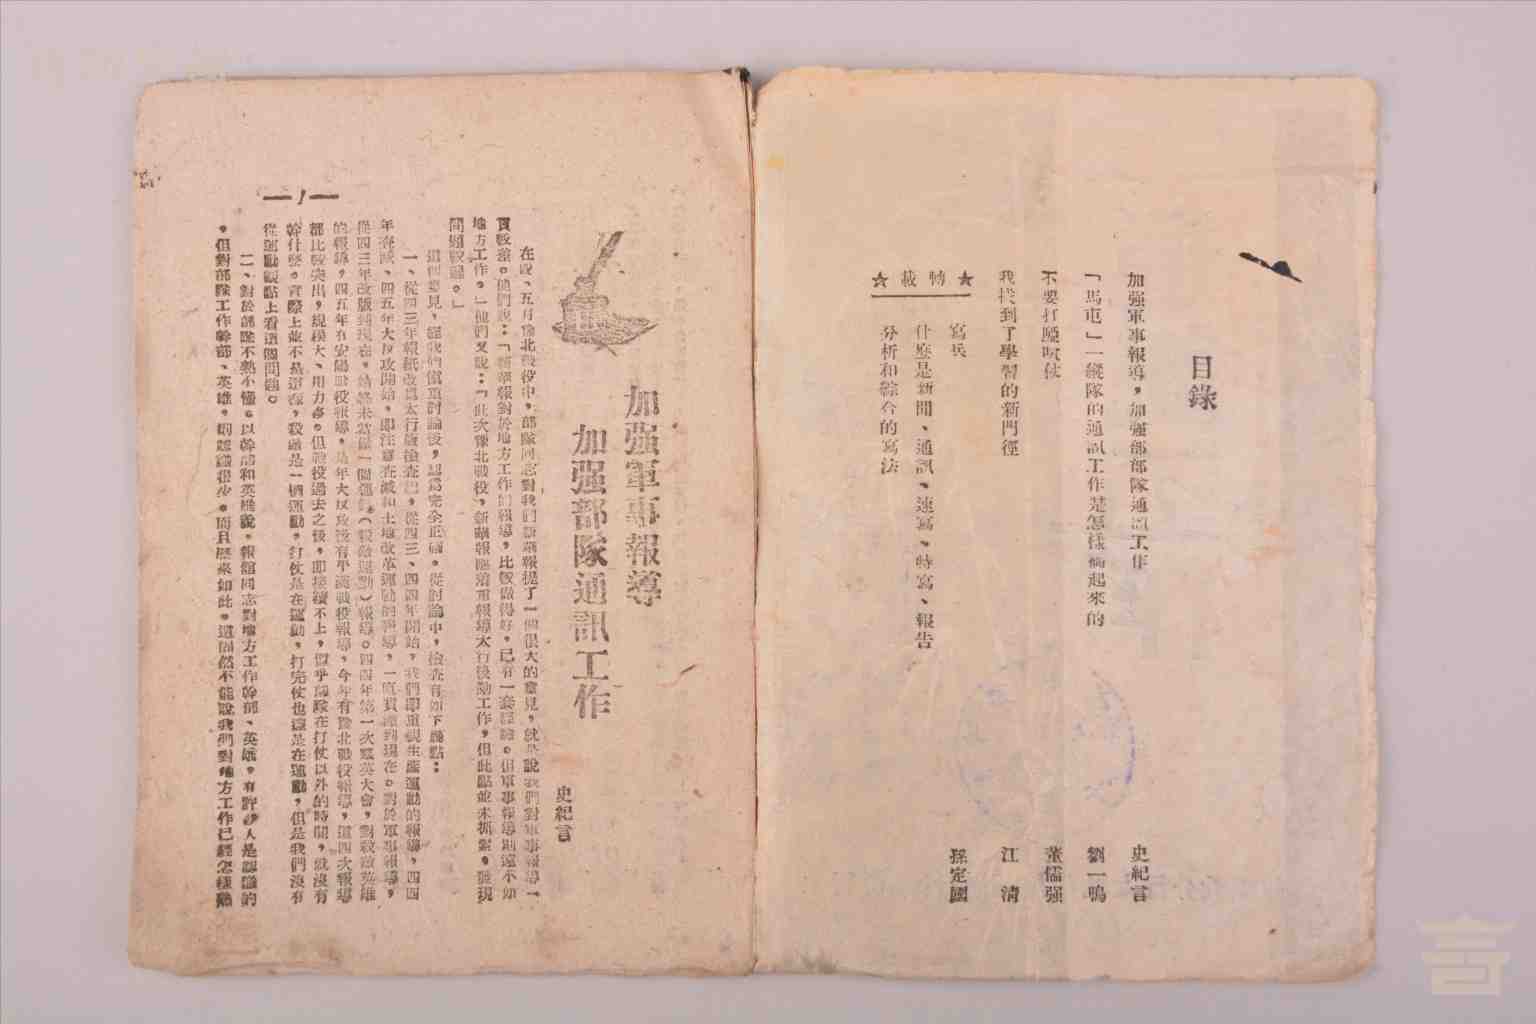 目錄
加强軍事報導，加强部隊通訊工作 史紀言
「馬屯」一縱隊的通訊工作是怎樣搞起來的 劉一鳴
不要打啞吧仗 董儒强
我找到了學習的新門徑 江清
寫兵 孫定國
★轉載★
什麼是新聞、通訊、速寫、特寫、報告
分析和綜合的寫法
加强軍事報導
加强部隊通訊工作
史紀言
在四、五月豫北戰役中，部隊同志對我們新華報提了一個很大的意見，就是說我們對軍事報導一
貫較差。他們說：「新華報對於地方工作的報導，比較做得好，已有一套經驗。但軍事報導則遠不如
地方工作。」他們又說：「此次豫北戰役，新華報應着重報導太行後勤工作，但此點並未抓緊。發現
問題較遲。」
這個意見，經我們慎重討論後，認為完全正確。從討論中，檢查有如下幾點：
一、從四三年報紙改爲太行版檢查起，從四三、四四年開始，我們即重視生產運動的報導，四四
年查減、四五年大反攻開始，即注意查減和土地改革運動的報導，一直貫澈到現在。對於軍事報導，
從四三年改版到現在，始終未當做一個運動（殺敵運動）報導。四四年第一次羣英大會，對殺敵英雄
的報導，四五年有安陽戰役報導，是年大反攻後有平漢戰役報導，今年有豫北戰役報導，這四次報導
都比較突出，規模大、用力多。但戰役過去之後，即接續不上，似乎部隊在打仗以外的時間，就沒有
幹什麼。實際上並不是這樣，殺敵是一個運動，打仗是在運動，打完仗也還是在運動，但是我們沒有
從運動觀點上看這個問題。
二、對於部隊不熟不懂。以幹部和英雄說，報館同志對地方工作幹部、英雄，有許多人是認識的
，但對部隊工作幹部、英雄，則認識很少。而且歷來如此。這固然不能說我們對地方工作已經怎樣熟
—1—